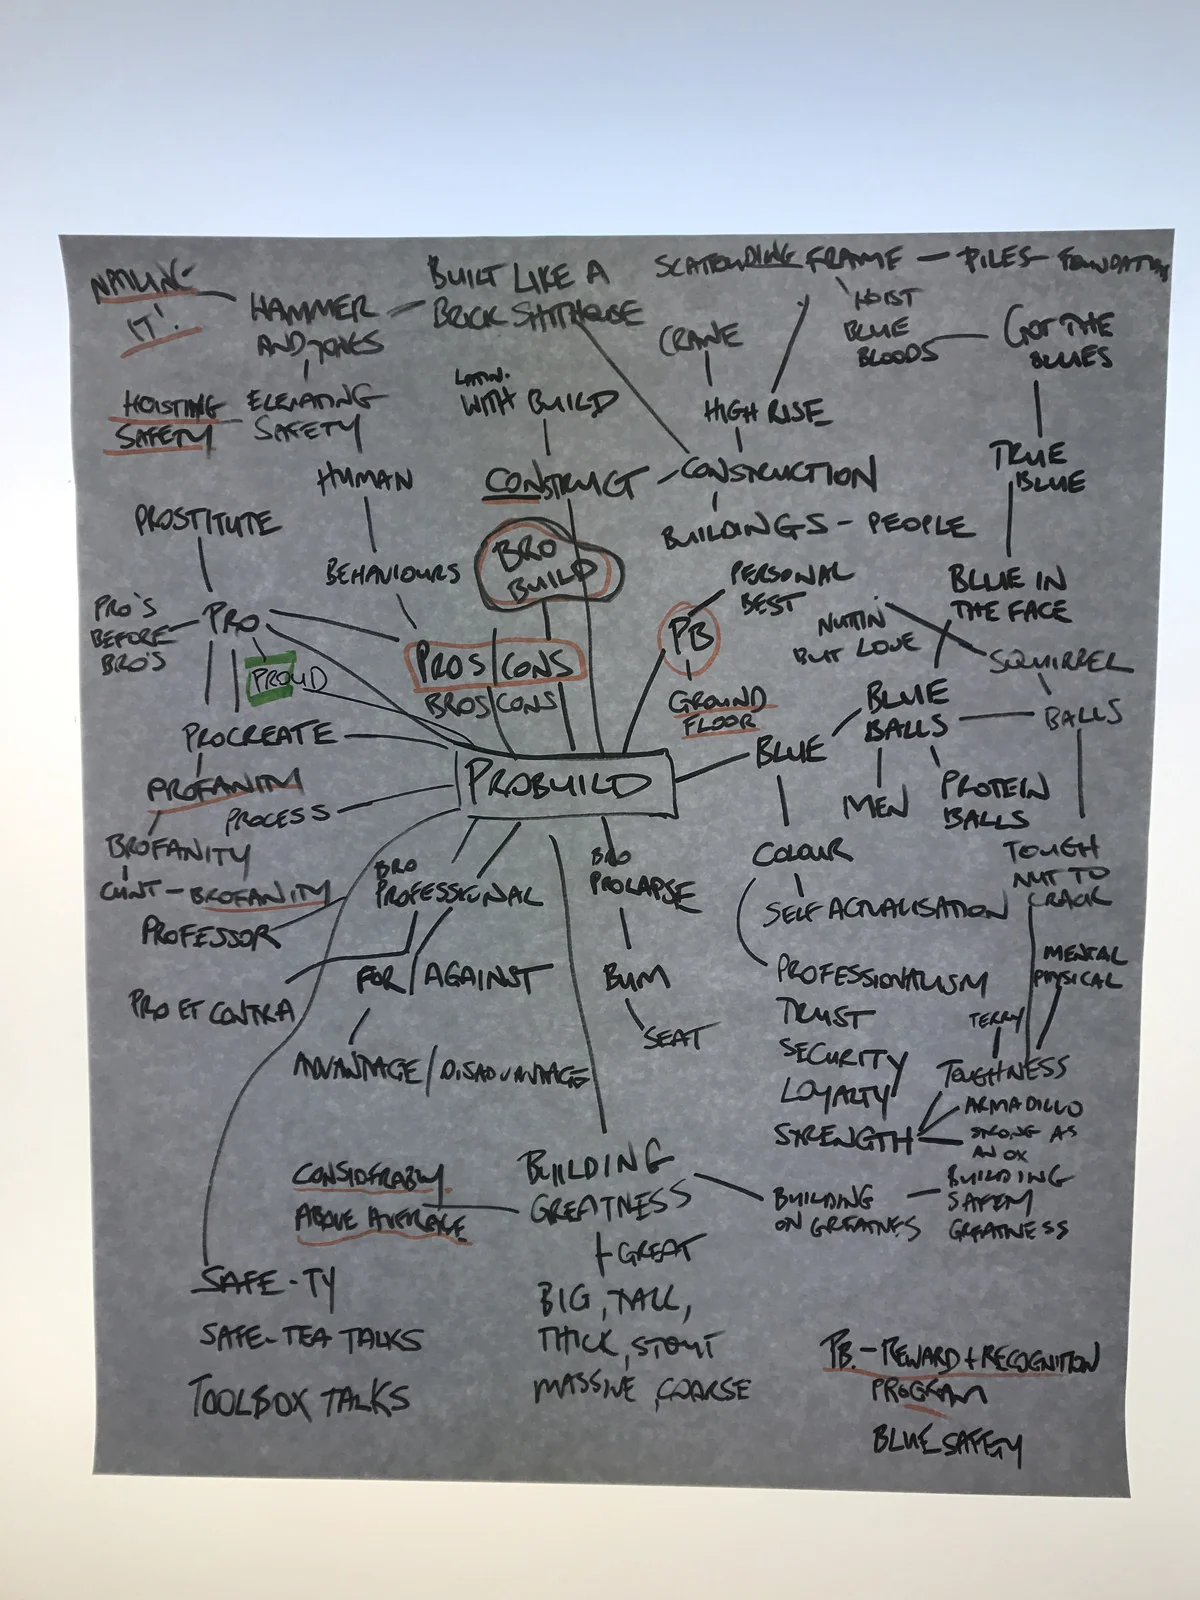 NAILING
IT!
HAMMER
AND TONGS
BUILT LIKE A
BRICK SHITHOUSE
SCAFFOLDING FRAME - PILES - FOUNDATION
HOIST
BLUE
BLOODS
GOT THE
BLUES
CRANE
HOISTING
SAFETY
ELEVATING
SAFETY
LATIN.
WITH BUILD
HIGH RISE
TRUE
BLUE
HUMAN
CONSTRUCT
CONSTRUCTION
PROSTITUTE
BUILDINGS - PEOPLE
BEHAVIOURS
BRO
BUILD
PERSONAL
BEST
BLUE IN
THE FACE
PRO'S
BEFORE
BRO'S
PRO
PB
NUTTIN'
BUT LOVE
SQUIRREL
PROUD
PROS/CONS
BROS/CONS
GROUND
FLOOR
BLUE
BALLS
BALLS
PROCREATE
BLUE
PROFANITY
PROCESS
PROBUILD
MEN
PROTEIN
BALLS
BROFANITY
CUNT - BROFANITY
PROFESSOR
BRO
PROFESSIONAL
BRO
PROLAPSE
COLOUR
SELF ACTUALISATION
TOUGH
NUT TO
CRACK
PRO ET CONTRA
FOR/AGAINST
BUM
SEAT
PROFESSIONALISM
TRUST
SECURITY
LOYALTY
STRENGTH
MENTAL
PHYSICAL
TERRY
TOUGHNESS
ARMADILLO
STRONG AS
AN OX
ADVANTAGE/DISADVANTAGE
CONSIDERABLY
ABOVE AVERAGE
BUILDING
GREATNESS
BUILDING
ON GREATNES
BUILDING
SAFETY
GREATNESS
GREAT
BIG, TALL,
THICK, STOUT
MASSIVE, COARSE
SAFE-TY
SAFE-TEA TALKS
TOOLBOX TALKS
PB.-REWARD + RECOGNITION
PROGRAM
BLUE SAFETY